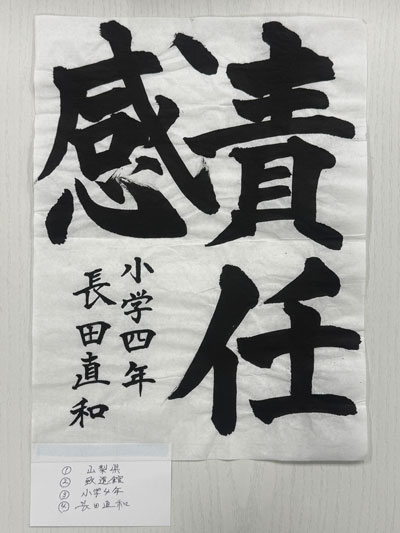 責任
感
小学四年
長田直和
① 山梨県
② 致道館
③ 小学4年
④ 長田直和